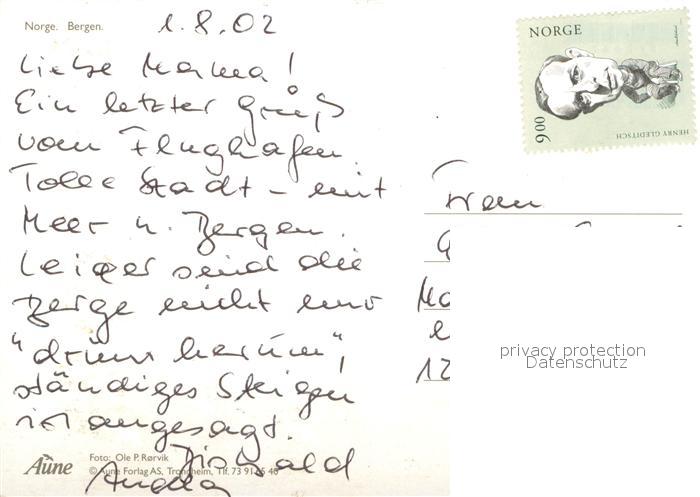 Norge. Bergen.
1.8.02
Liebe Mama!
Ein letzter Gruß
vom Flughafen.
Tolle Stadt – mit
Meer u. Bergen.
Leider sind die
Berge nicht nur
"drum herum",
ständiges Steigen
ist angesagt.
Bis bald
Angela
Aune
Foto: Ole P. Rørvik
© Aune Forlag AS, Trondheim, Tlf. 73 91 65 40
NORGE
9.00
HENRY GLEDITSCH
Frau
privacy protection
Datenschutz